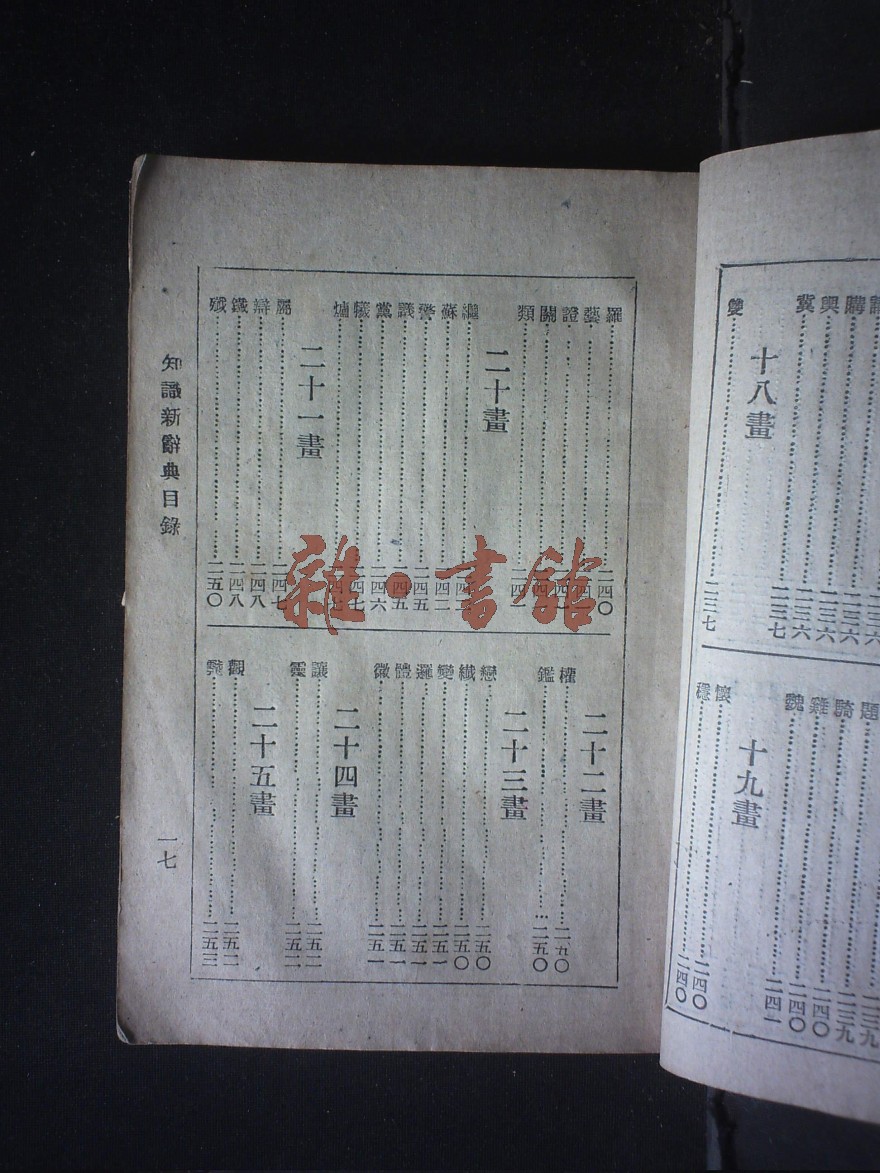 十八畫
變……二三七
購
興……二三六
冀……二三七
十九畫
題
騎……二三九
雞……二四〇
懷……二四〇
穩……二四〇
羅……二四〇
藝
證
關
類
二十畫
繼
蘇……二四二
警……二四五
議……二四五
黨……二四六
犧……二四七
爐
二十一畫
屬……二四七
辯……二四八
鐵……二四八
殲……二五〇
二十二畫
權……二五〇
鑑……二五〇
二十三畫
戀……二五〇
纖……二五〇
變……二五一
邏……二五一
體……二五一
黴……二五一
二十四畫
讓……二五二
靈……二五二
二十五畫
觀……二五二
知識新辭典目錄
一七
雜·書館